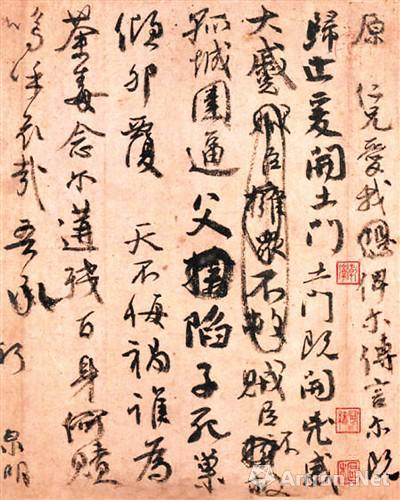 原 仁兄愛我 俾尔傳言尔既
歸止爰開土門 土門既開凶威
大蹙賊臣擁衆不救賊臣不救
孤城圍逼父陷子死巢
傾卵覆 天不悔禍誰為
荼毒念尔遘殘百身何贖
嗚呼哀哉吾承
泉明
Artron.Net